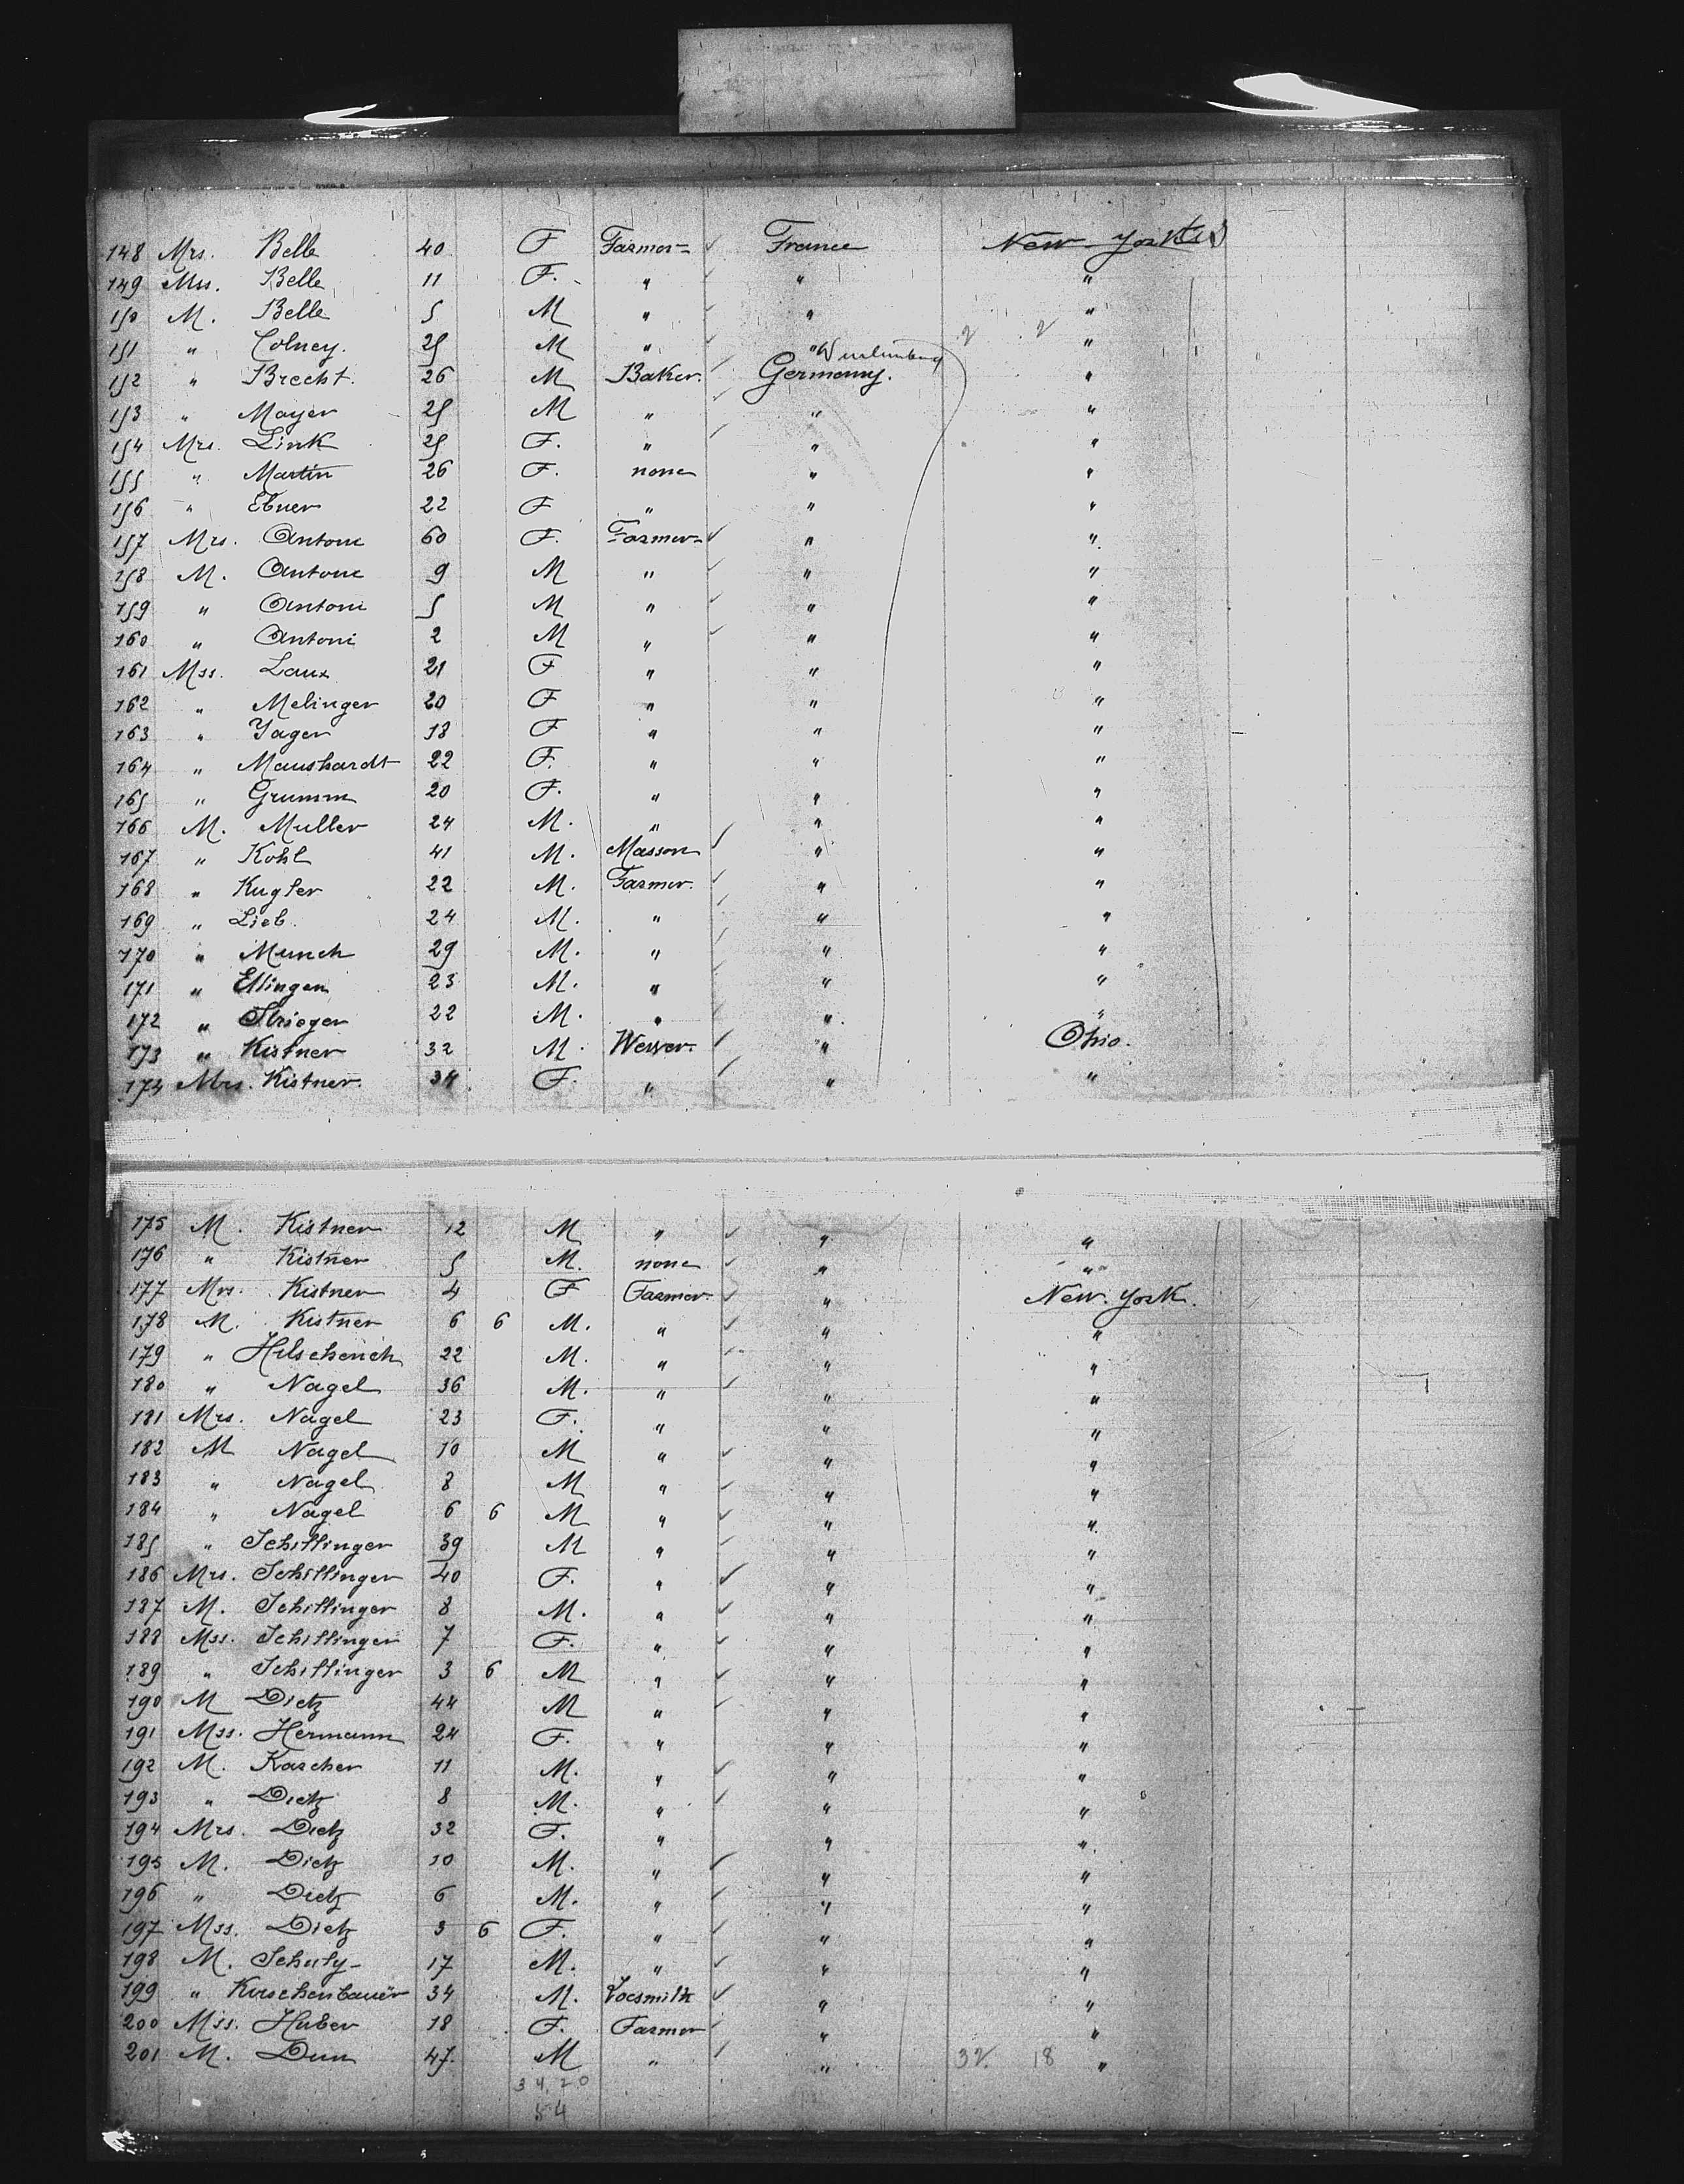 148 Mrs. Belle 40 F Farmer France New-York
149 Mss. Belle 11 F. " " "
150 M. Belle 5 M " " "
151 " Colney. 25 M " " "
Wurtemberg
152 " Brecht. 26 M Baker. Germany. "
153 " Mayer 25 M " " "
154 Mrs. Link 25 F. " " "
155 " Martin 26 F. none " "
156 " Ebner 22 F " " "
157 Mrs. Antoni 60 F. Farmer " "
158 M. Antoni 9 M " " "
159 " Antoni 5 M " " "
160 " Antoni 2 M " " "
161 Mss. Laux 21 F " " "
162 " Melinger 20 F " " "
163 " Jager 18 F " " "
164 " Maushardt 22 F. " " "
165 " Grumm 20 F. " " "
166 M. Muller 24 M. " " "
167 " Kohl 41 M. Masson " "
168 " Kugler 22 M. Farmer. " "
169 " Lieb. 24 M. " " "
170 " Munch 29 M. " " "
171 " Ellingen 23 M. " " "
172 " Strieger 22 M. " " "
173 " Kistner 32 M. " Ohio.
174 Mrs. Kistner. 34 F. " " "
175 M. Kistner 12 M " " "
176 " Kistner 5 M. none " "
177 Mrs. Kistner 4 F Farmer. " New-York.
178 M. Kistner 6 6 M. " " "
179 " Hilschench 22 M. " " "
180 " Nagel 36 M. " " "
181 Mrs. Nagel 23 F. " " "
182 M Nagel 10 M " " "
183 " Nagel 8 M " " "
184 " Nagel 6 6 M " " "
185 " Schillinger 39 M " " "
186 Mrs. Schillinger 40 F. " " "
187 M. Schillinger 8 M. " " "
188 Mss. Schillinger 7 F. " " "
189 " Schillinger 3 6 M " " "
190 M Dietz 44 M " " "
191 Mss. Hermann 24 F. " " "
192 M. Karcher 11 M. " " "
193 " Dietz 8 M. " " "
194 Mrs. Dietz 32 F. " " "
195 M. Dietz 10 M. " " "
196 " Dietz 6 M. " " "
197 Mss. Dietz 3 6 F. " " "
198 M. Schuly 17 M. " " "
199 " Kirschenbauer 34 M. Locsmith " "
200 Mss. Huber 18 F. Farmer " "
201 M. Dum 47. M " " 32 18 "
34,20
54